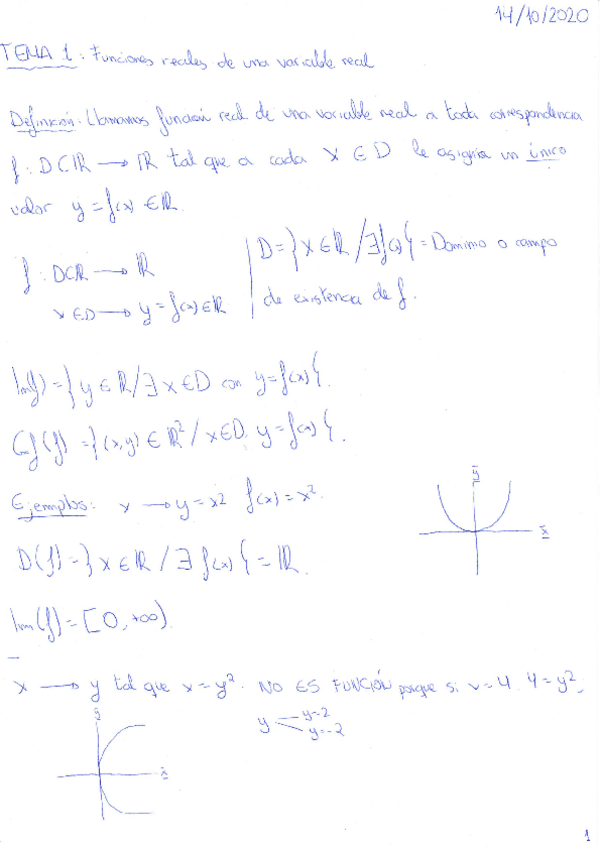 14/10/2020
TEMA 1: Funciones reales de una variable real
Definición: Llamamos función real de una variable real a toda correspondencia
f: D⊂ℝ → ℝ tal que a cada x∈D le asigna un único
valor y=f(x) ∈ℝ.
f: D⊂ℝ → ℝ
x∈D → y=f(x)∈ℝ
D={x∈ℝ/∃f(x)}=Dominio o campo
de existencia de f.
Im(f)={y∈ℝ/∃x∈D con y=f(x)}.
Gf(f)={(x,y)∈ℝ²/x∈D, y=f(x)}.
Ejemplos: x → y=x² f(x)=x².
y
x
D(f)={x∈ℝ/∃f(x)}=ℝ.
Im(f)=[0,+∞).
x → y tal que x=y². NO ES FUNCIÓN porque si x=4, 4=y²,
y y=2
y=-2
y
x
1